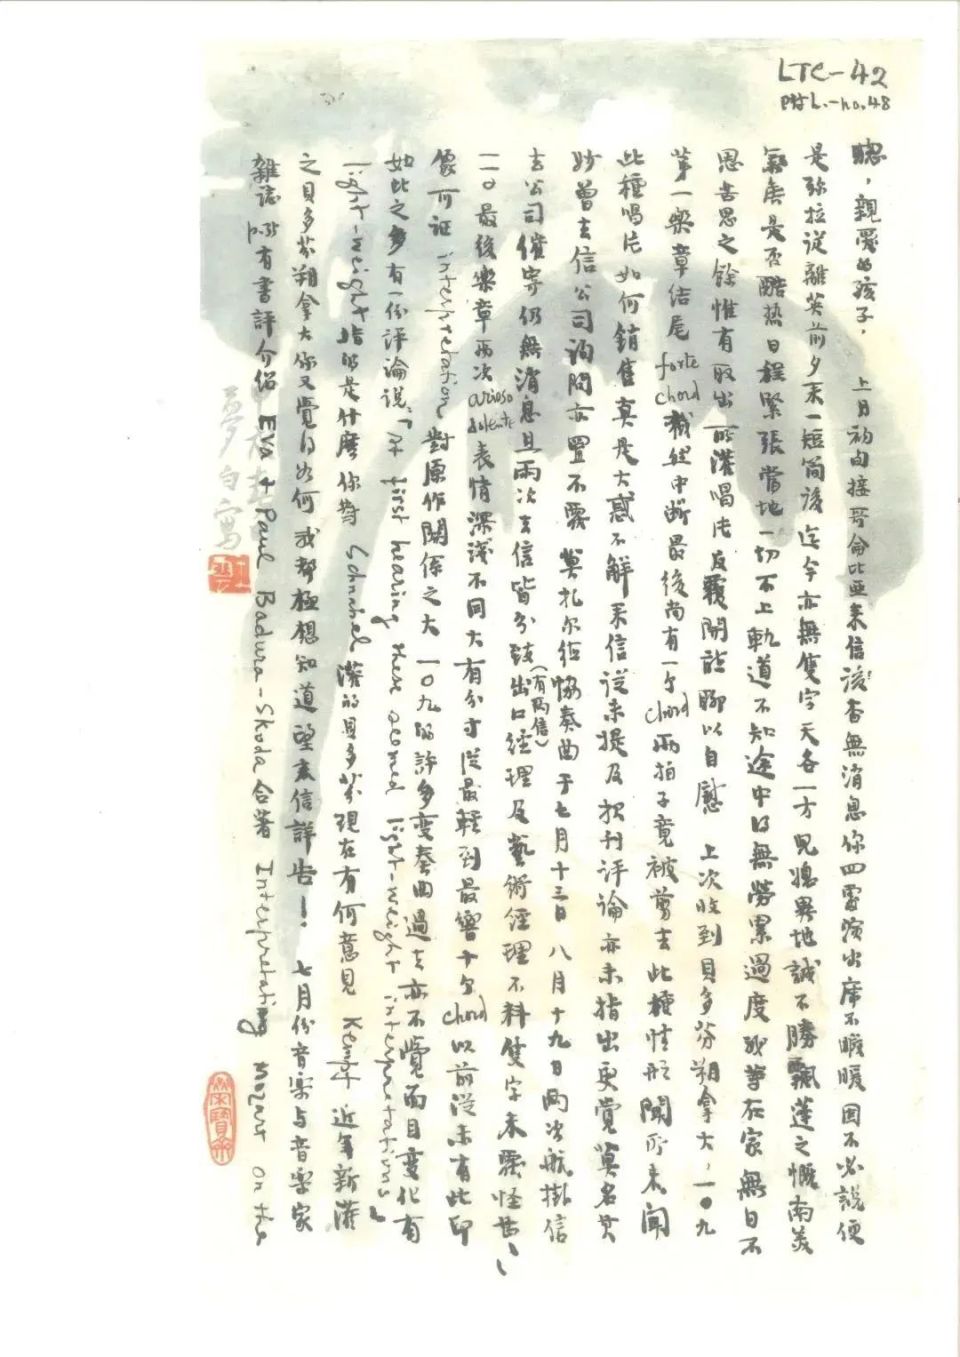 LTC-42
附L.-no.48
聰，親愛的孩子，上月初旬接哥倫比亞來信後杳無消息你四處演出席不暇暖固不必說便
是弥拉從離英前夕來一短简後迄今亦無隻字天各一方兒媳異地誠不勝飄蓬之慨南美
氣候是否酷热日程緊張當地一切不上軌道不知途中得無勞累過度我等在家無日不
思苦思之餘惟有取出所灌唱片反覆開聽聊以自慰 上次收到貝多芬朔拿大，一〇九
第一樂章結尾 forte chord 截然中断最後尚有一个 chord 兩拍子竟被剪去此種情形聞所未聞
此種唱片如何銷售真是大感不解來信從未提及报刊评論亦未指出更覺莫名其
妙曾去信公司詢問亦置不覆 莫扎尔德協奏曲于七月十三日八月十九日两次航掛信
去公司催寄仍無消息且兩次去信皆分致(有两信)出口經理及藝術經理不料隻字未覆怪甚！
一一〇最後樂章两次 arioso dolente 表情深淺不同大有分寸從最輕到最響十个 chord 以前從未有此印
像可证 interpretation 對原作關係之大一〇九的許多變奏曲過去亦不覺面目變化有
如此之多有一份评論说「At first hearing these seemed light-weight interpretations」
light-weight 指的是什麼你對 Schnabel 灌的貝多芬現在有何意見 Kempf 近年新灌
之貝多芬朔拿大你又覺得如何我都極想知道望來信詳告！七月份音乐与音乐家
雜誌 p.35 有書評介绍 Eva & Paul Badura-Skoda 合著 Interpreting Mozart on the
白寫
榮寶齋